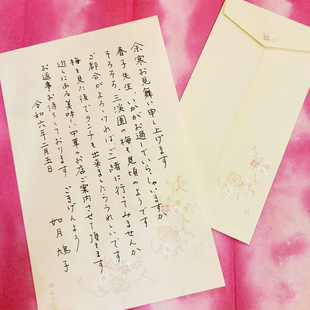 余寒お見舞い申し上げます
春子先生、いかがお過しでいらっしゃいますか
そろそろ、三溪園の梅も見頃のようです
ご都合がよろしければご一緒に行ってみませんか
梅を見た後でランチも出来ましたらうれしいです
近くにある美味しい中華のお店ご案内させて頂きます
お返事お待ちしております ごきげんよう
令和六年二月五日
如月 鳩子